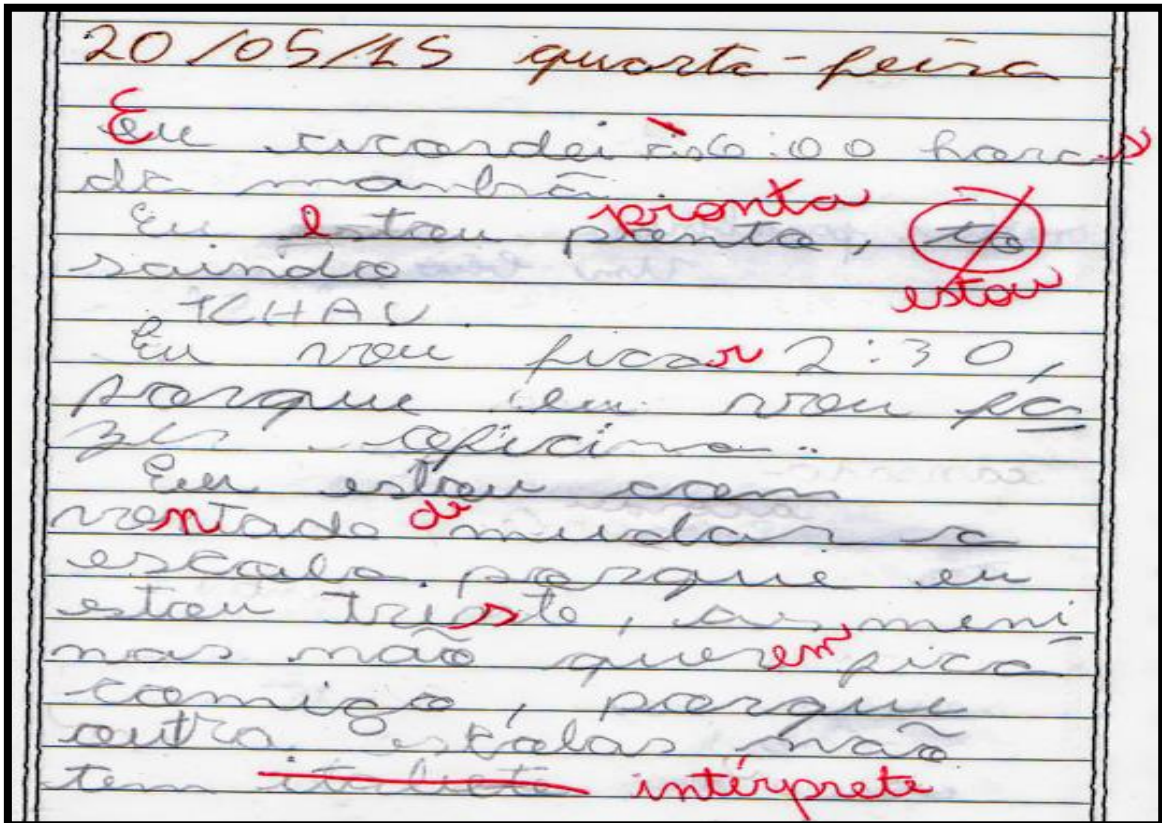 20/05/15 quarta-feira
Eu acordei às 6:00 horas
da manhã.
pronta
Eu estou panta, to
saindo estou
TCHAU.
Eu vou ficar 2:30,
porque eu vou fa
zer oficina.
Eu estou com
ventade de mudar a
escola. porque eu
estou trieste, as meni
nas não querem fica
comigo, porque
outra escolas não
tem intérprete